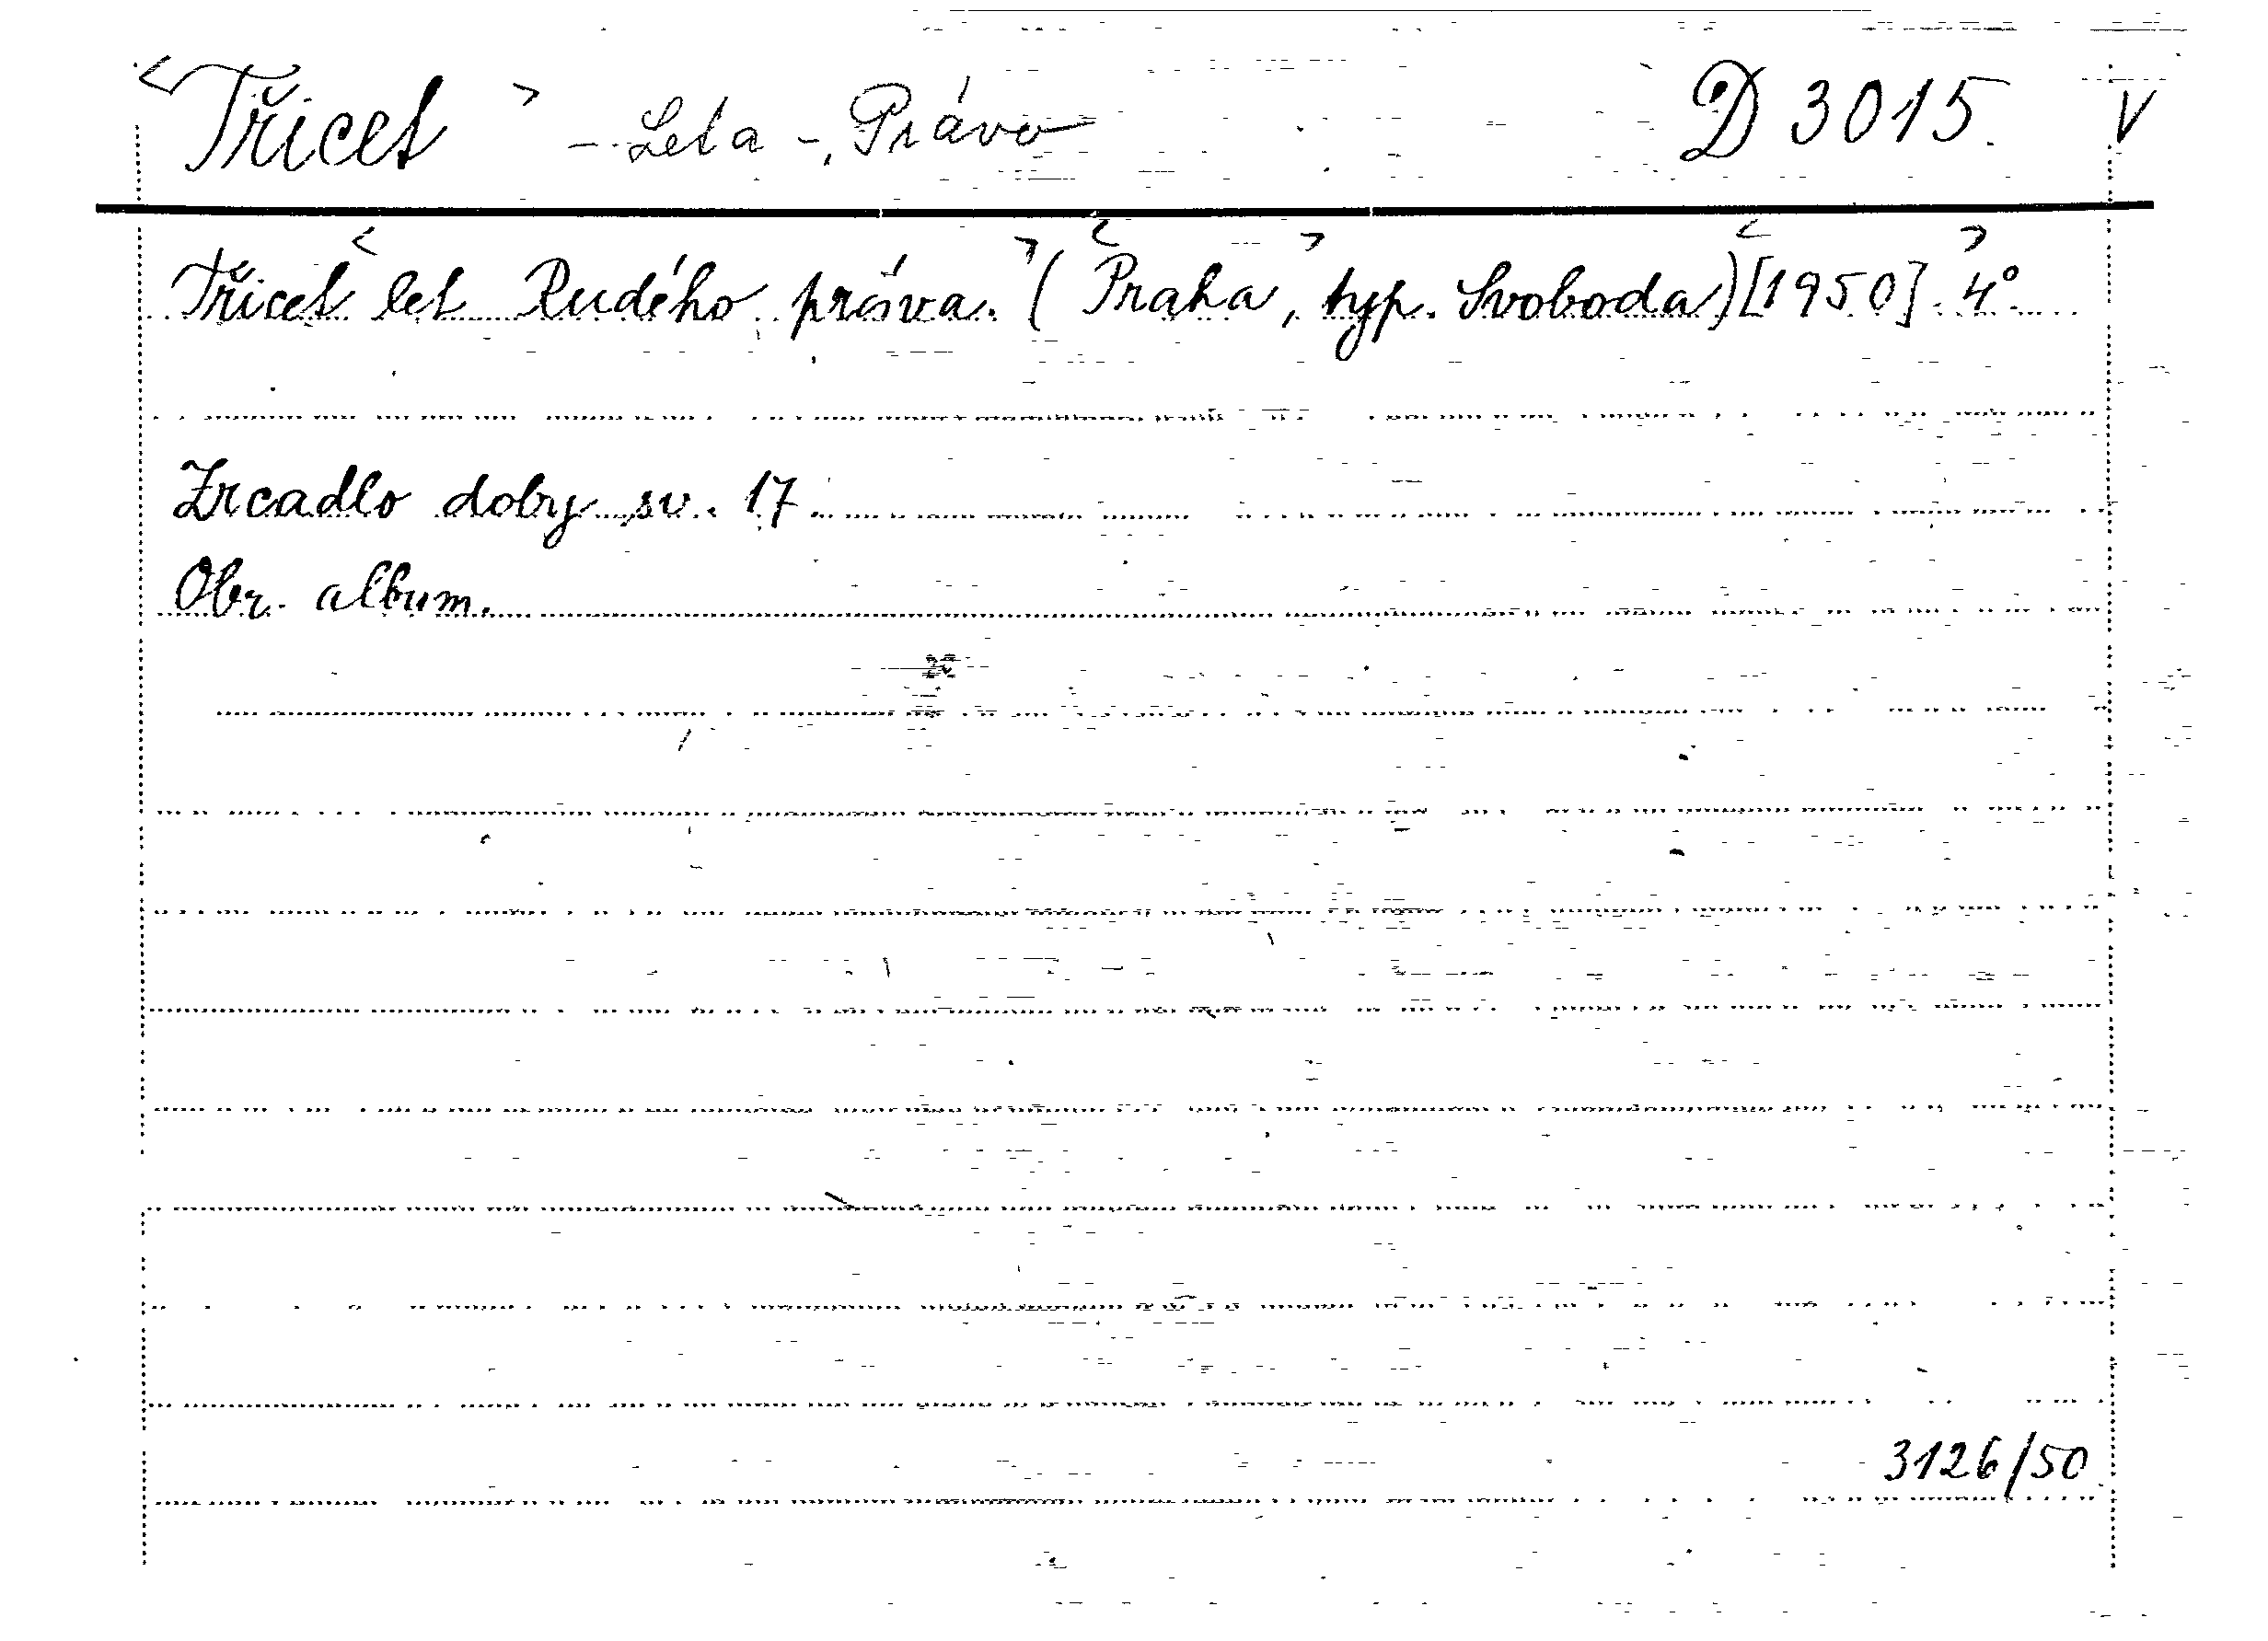 <Třicet> - Leta -, Právo D 3015. V
Třicet <let Rudého práva.> (<Praha,> typ. Svoboda) <[1950].> 4°
Zrcadlo doby sv. 17.
Obr. album.
3126/50